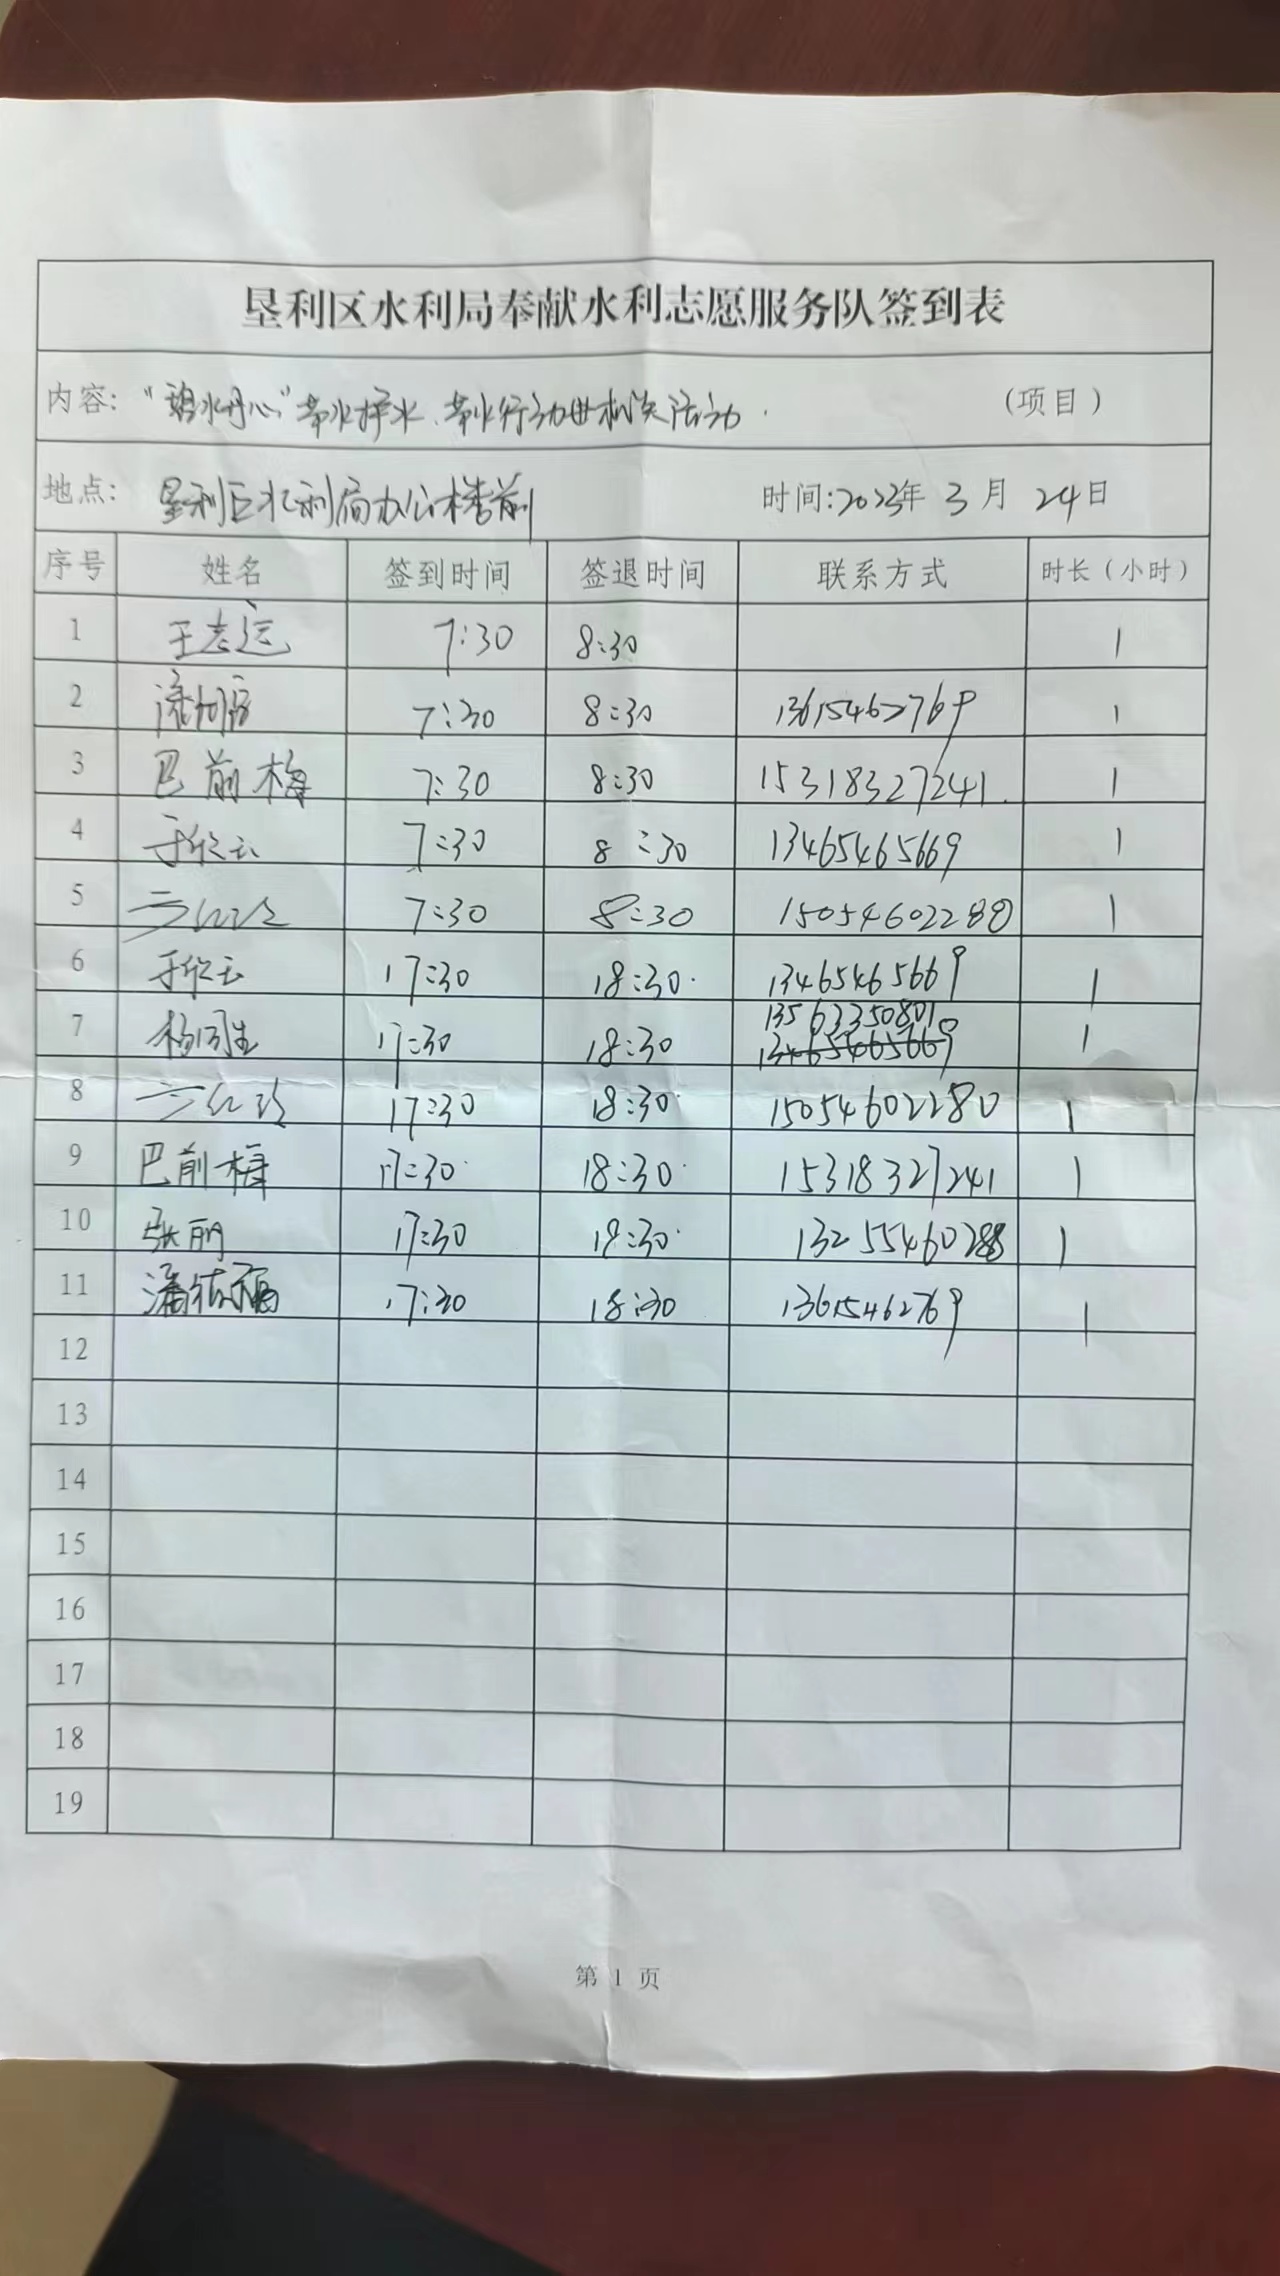 垦利区水利局奉献水利志愿服务队签到表
内容: “碧水丹心” 节水护水、节水行动 活动 (项目)
地点: 垦利区水利局办公楼前 时间:2023年 3 月 24日
序号 姓名 签到时间 签退时间 联系方式 时长(小时)
1 王志远 7:30 8:30 1
2 7:30 8:30 13615462769 1
3 巴前梅 7:30 8:30 15318327241 1
4 于欣云 7:30 8:30 13465465669 1
5 7:30 8:30 15054602280 1
6 于欣云 17:30 18:30 13465465669 1
7 17:30 18:30 13563350801 13465465669 1
8 17:30 18:30 15054602280 1
9 巴前梅 17:30 18:30 15318327241 1
10 张丽 17:30 18:30 1
11 17:30 18:30 13615462769 1
12
13
14
15
16
17
18
19
第 1 页